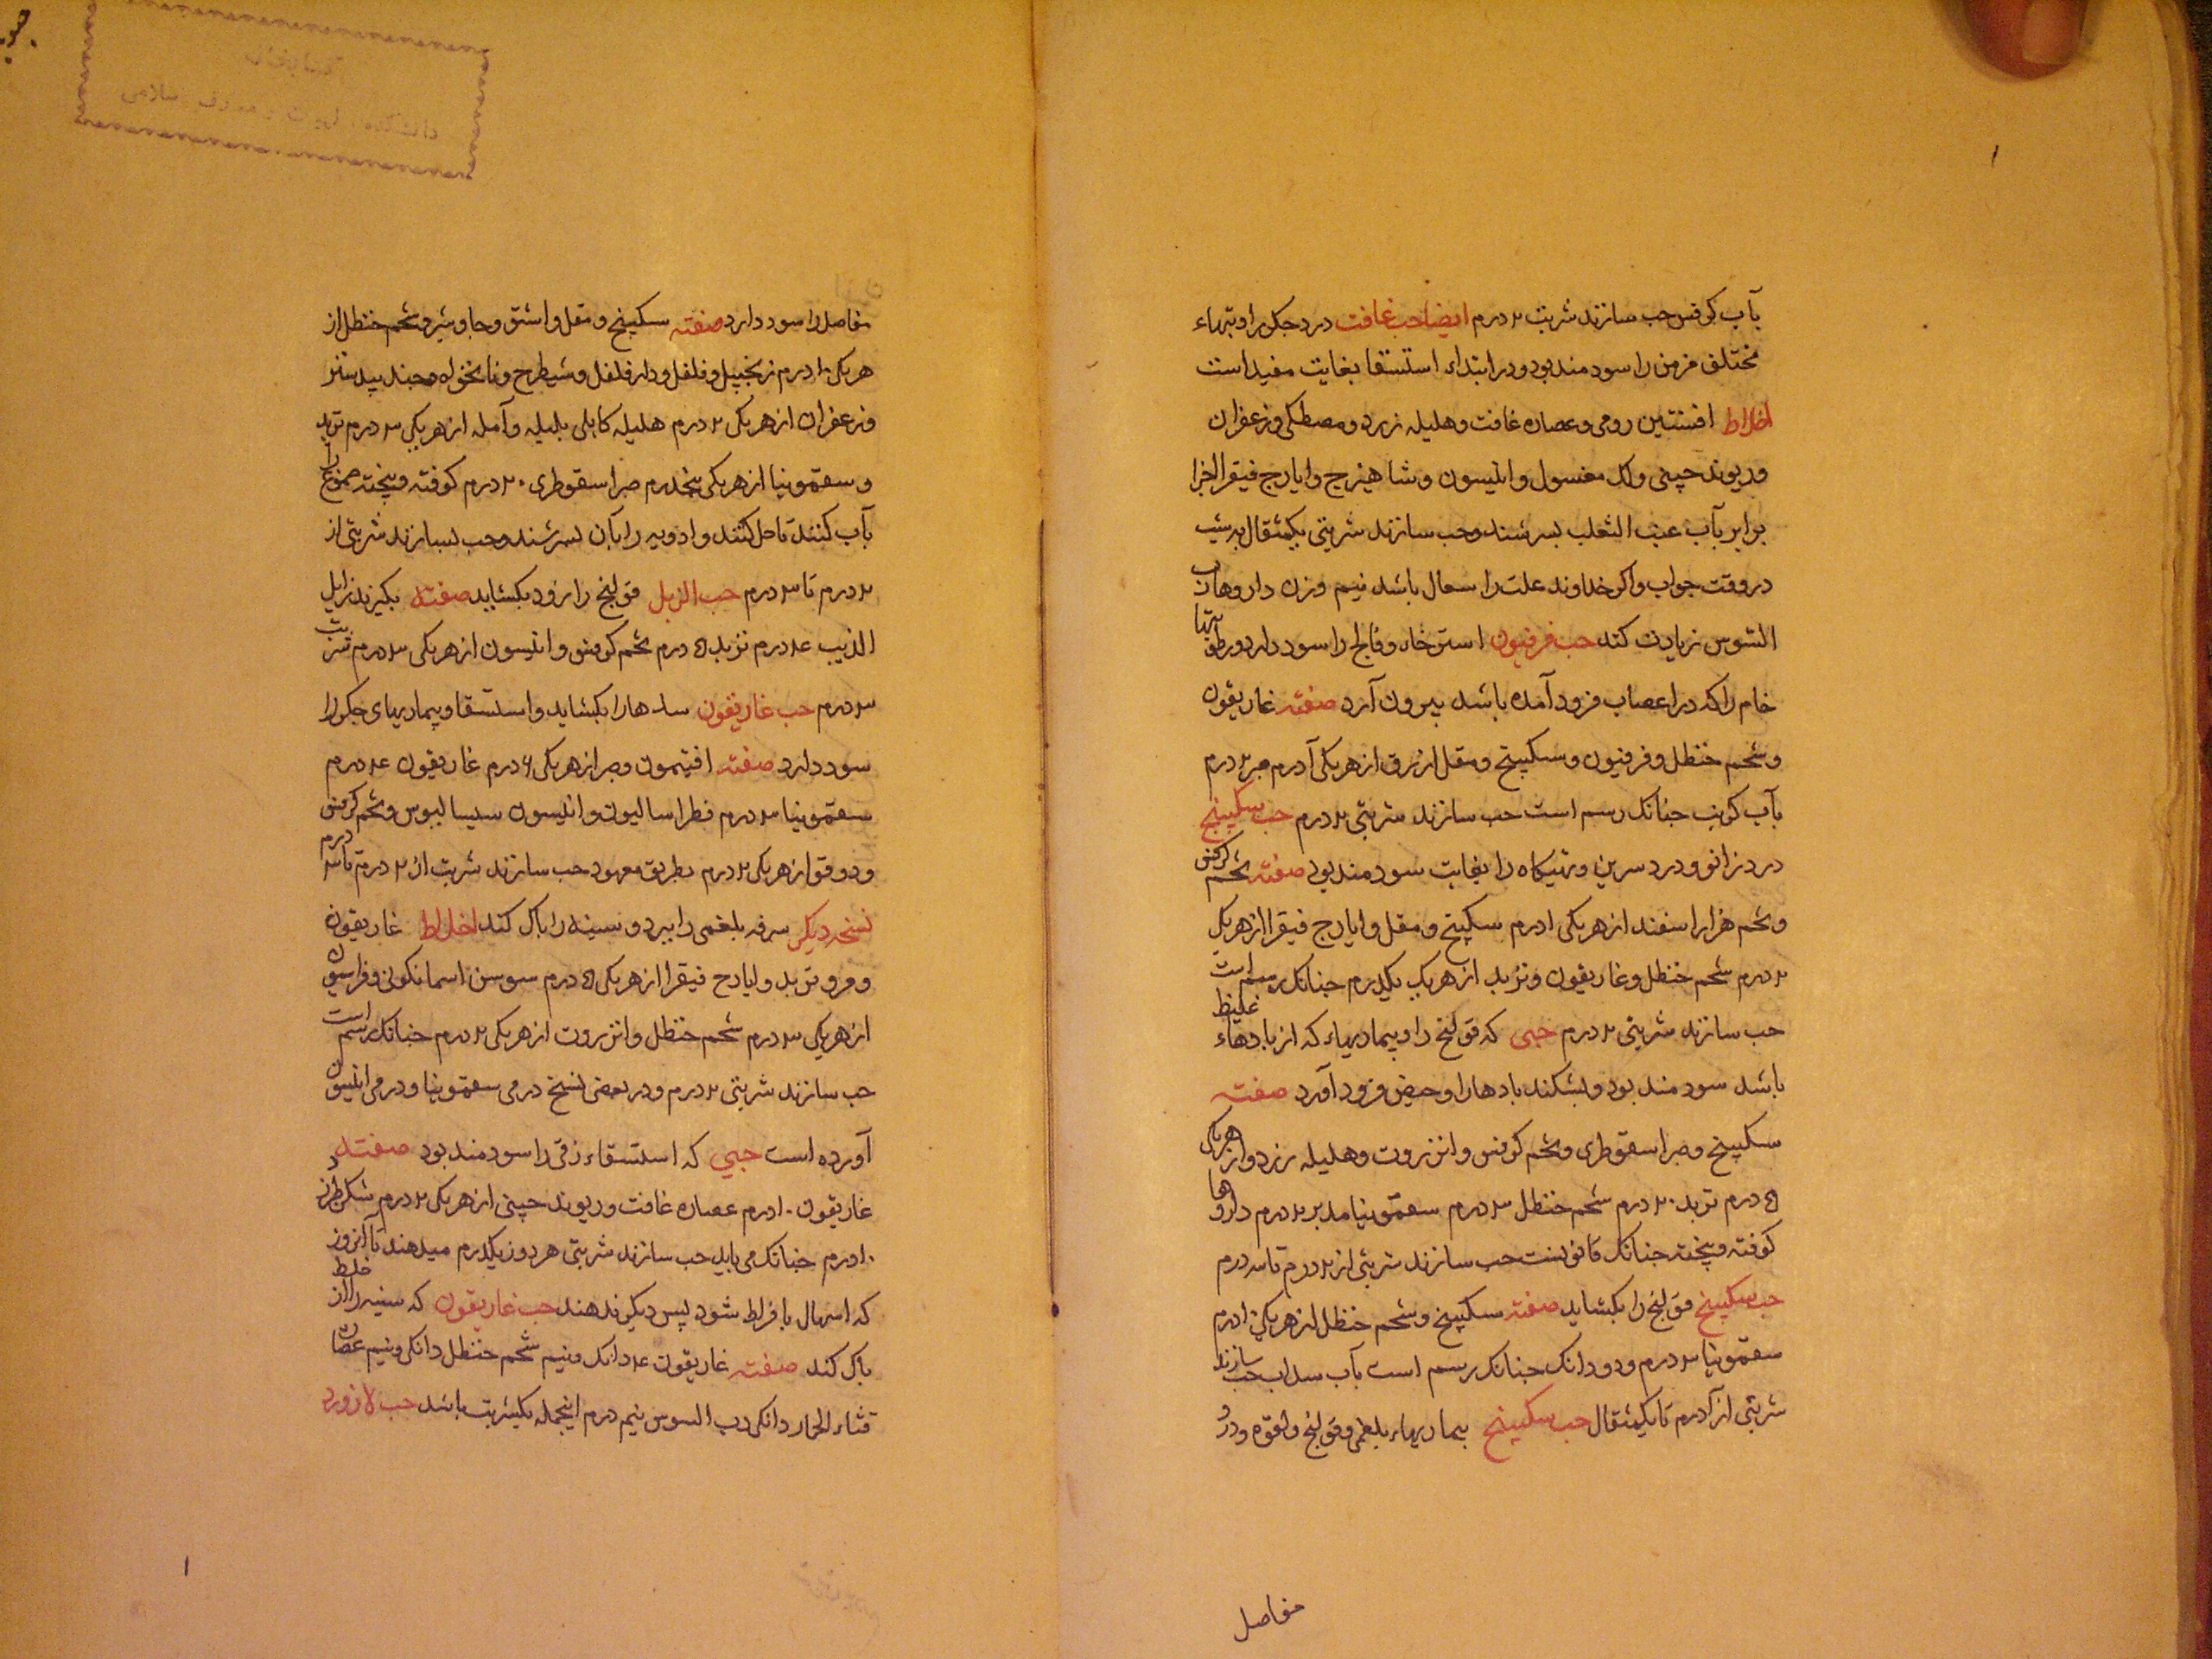 بآب کرفس حب سازند شربت ۲ درم ایضا حب غافت درد جکر را و تبهاء
مختلف مزمن را سودمند بود و در ابتداء استسقا بغایت مفید است
اخلاط افسنتین رومی و عصاره غافت و هلیله زرد و مصطکی و زعفران
و ریوند چینی و لک مغسول و انیسون و شاهترج و ایارج فیقرا اجزا
برابر بآب عنب الثعلب بسرشند و حب سازند شربتی یکمثقال بدشب
در وقت خواب و اکر خداوند علت را سعال باشد نیم وزن داروها رب
السوس زیادت کند حب فرفیون استرخاء و فالج را سود دارد و رطوبتها
خام را که در اعصاب فرود آمده باشد بیرون آرد صفته غاریقون
و شحم حنظل و فرفیون و سکبینج و مقل ازرق از هریکی ۱ درم صبر ۲ درم
بآب کرنب جنانک رسم است حب سازند شربتی ۲ درم حب سکبینج
درد زانو و درد سرین و تهیکاه را بغایت سودمند بود صفته تخم کرفس
و تخم هزار اسفند از هریکی ۱ درم سکبینج و مقل و ایارج فیقرا از هریک
۲ درم شحم حنظل و غاریقون و تربد از هریک یکدرم جنانک رسم است
حب سازند شربتی ۲ درم حبی که قولنج را و بیماریهاء که از بادهاء غلیظ
باشد سودمند بود و بشکند بادها را و حیض فرود آورد صفته
سکبینج و صبر اسقوطری و تخم کرفس و انزروت و هلیله زرد از هریکی
۵ درم تربد ۲۰ درم شحم حنظل ۳ درم سقمونیا مدبر ۲ درم داروها
کوفته و بیخته جنانک قانونست حب سازند شربتی از ۲ درم تا ۳ درم
حب سکبینج قولنج را بکشاید صفته سکبینج و شحم حنظل از هریکی ۱۰ درم
سقمونیا ۳ درم و دو دانک جنانک رسم است بآب سداب حب سازند
شربتی از ۱ درم تا یکمثقال حب سکبینج بیماریهاء بلغمی و قولنج و لقوه و درد
مفاصل
مفاصل را سود دارد صفته سکبینج و مقل و اشق و جاوشیر و شحم حنظل از
هریکی ۱۰ درم زنجبیل و فلفل و دارفلفل و شیطرج و نانخواه و جندبیدستر
و زعفران از هریکی ۲ درم هلیله کابلی بلیله و آمله از هریکی ۳ درم تربد
و سقمونیا از هریکی پنجدرم صبر اسقوطری ۲۰ درم کوفته و بیخته صموغ را
بآب کنند تا حل کنند و ادویه را بآن بسرشند و حب بسازند شربتی از
۲ درم تا ۳ درم حب الزبل قولنج را زود بکشاید صفته بکیرند زبل
الذیب ۴ درم تربد ۵ درم تخم کرفس و انیسون از هریکی ۳ درم شربت
۳ درم حب غاریقون سدها را بکشاید و استسقا و بیماریهای جکر را
سود دارد صفته افتیمون و صبر از هریکی ۶ درم غاریقون ۴ درم
سقمونیا ۳ درم فطراسالیون و انیسون سیسالیوس و تخم کرفس
و دوقو از هریکی ۲ درم بطریق معهود حب سازند شربت از ۲ درم تا ۳ درم
نسخه دیکر سرفه بلغمی را ببرد و سینه را باک کند اخلاط غاریقون
و مر و تربد و ایارج فیقرا از هریکی ۵ درم سوسن اسمانکونی و فراسیون
از هریکی ۳ درم شحم حنظل و انزروت از هریکی ۲ درم جنانک رسم است
حب سازند شربتی ۲ درم و در بعضی نسخ درمی سقمونیا و درمی انیسون
آورده است حبی که استسقاء زقی را سودمند بود صفته
غاریقون ۱۰ درم عصاره غافت و ریوند چینی از هریکی ۲ درم شکر طبرزد
۱۰ درم جنانک می باید حب سازند شربتی هر روز یکدرم میدهند تا آنروز
که اسهال بافراط شود پس دیکر ندهند حب غاریقون که سینه را از خلط
باک کند صفته غاریقون ۴ دانک و نیم شحم حنظل دانکی و نیم عصاره
قثاء الحمار دانکی رب السوس نیم درم اینجمله یکشربت باشد حب لازورد